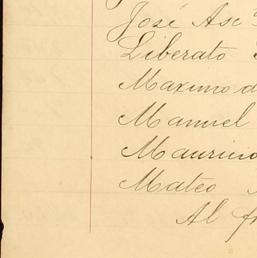 José Asc
Liberato
Maximo d
Manuel
Mauricio
Mateo
Al fr